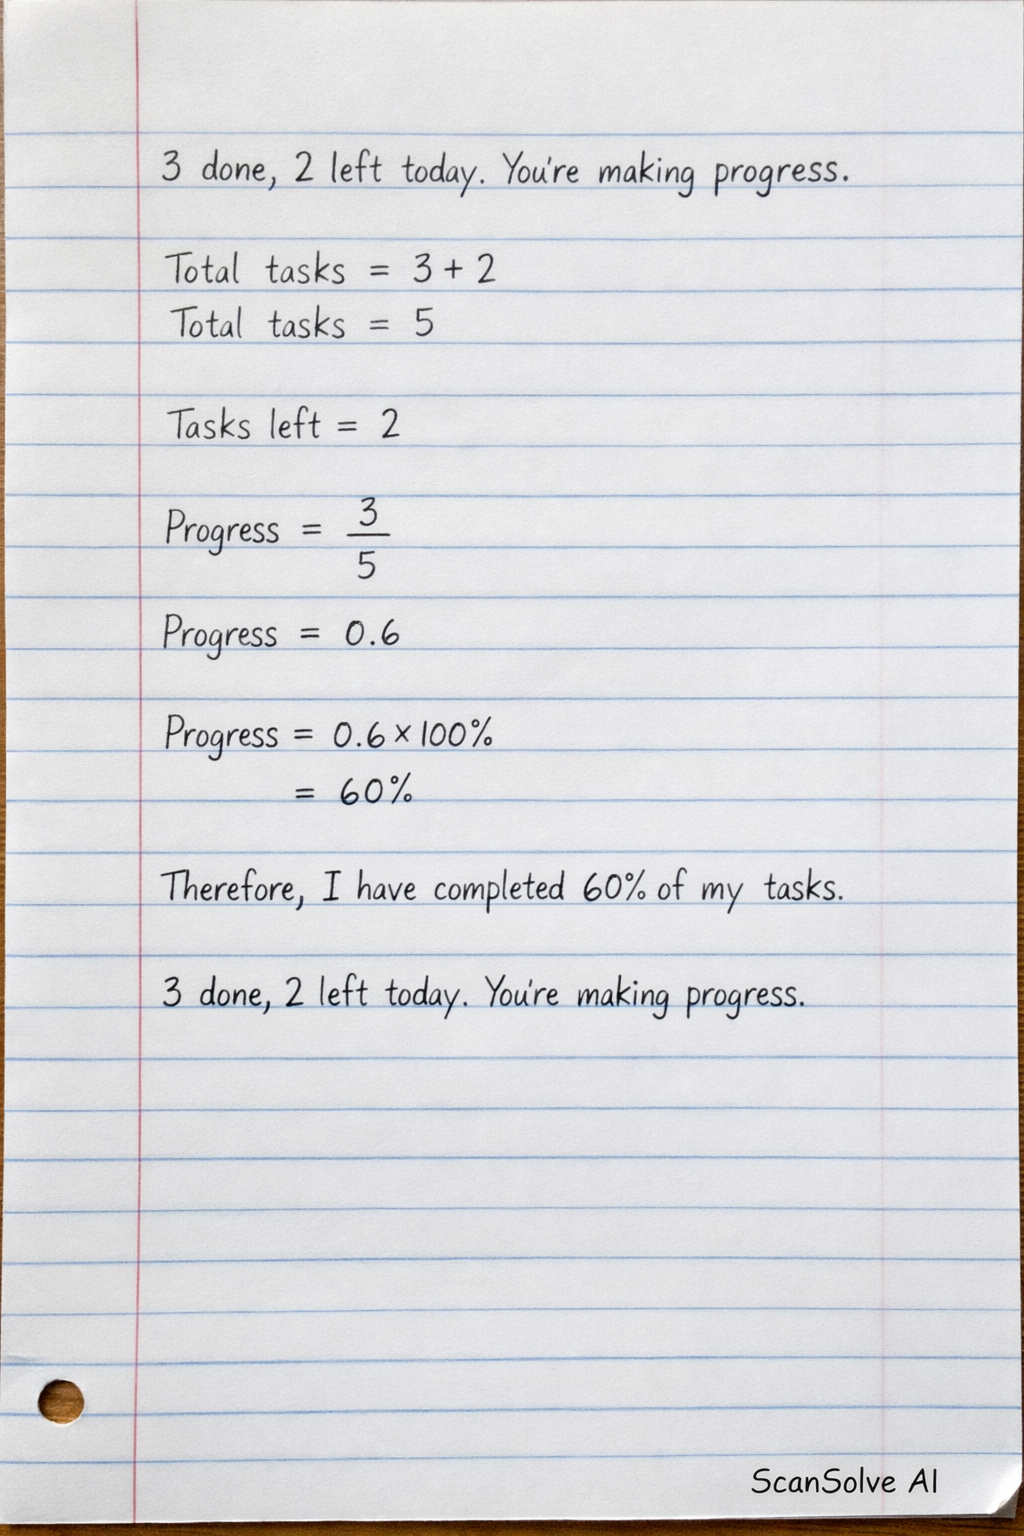 3 done, 2 left today. You're making progress.
Total tasks = 3 + 2
Total tasks = 5
Tasks left = 2
Progress = 3/5
Progress = 0.6
Progress = 0.6 × 100%
= 60%
Therefore, I have completed 60% of my tasks.
3 done, 2 left today. You're making progress.
ScanSolve AI